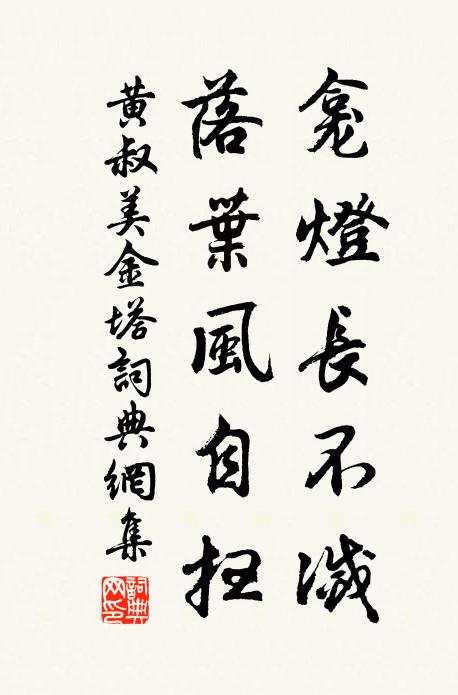 龕燈長不滅
落葉風自扫
黄叔美金塔詞典網集
詞典
网印